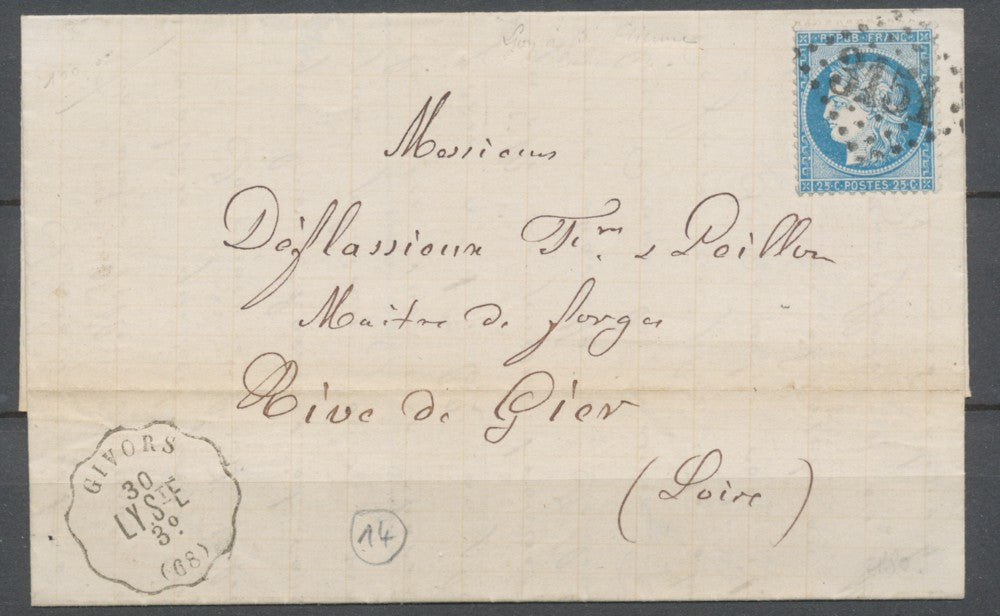 REPUB·FRANC·
25·C·POSTES·25·C·
Messieurs
Déflassieux Frs & Peillon
Maitre de forges
Rive de Gier
(Loire)
GIVORS
30
LYSTE
3º
(68)
14